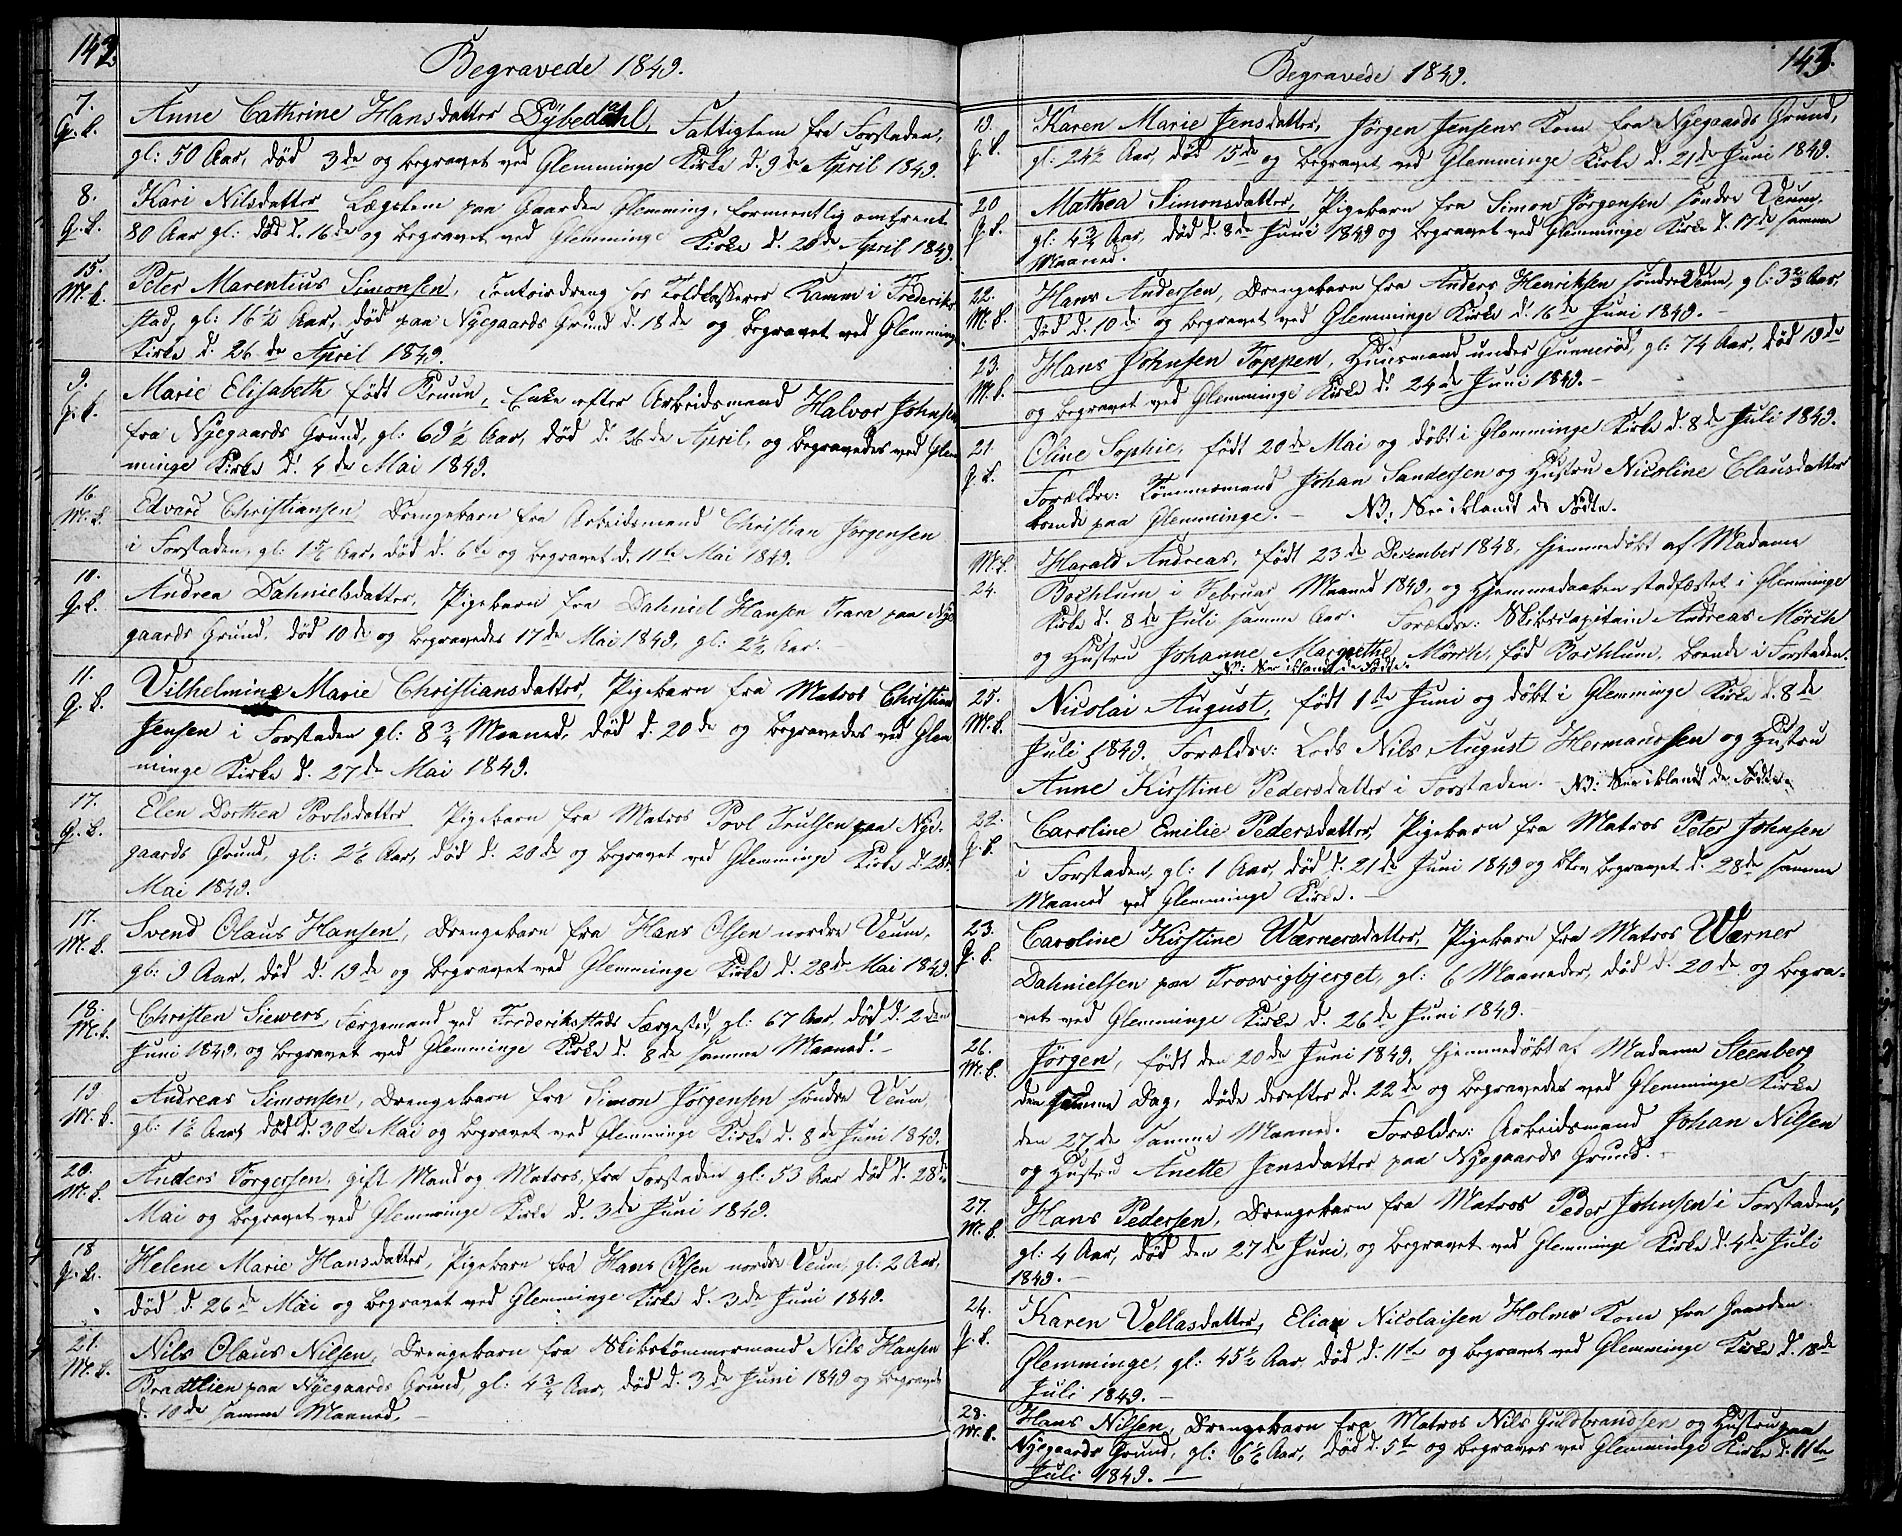 142
Begravede 1849.
7. Anne Cathrine Hansdatter Dybedahl, Fattiglem fra Forstaden,
Q. K. gl: 50 Aar, død 3de og begravet ved Glemminge Kirke d. 9de April 1849.
8. Kari Nilsdatter Lægdslem paa Gaarden Glemming, formentlig omtrent
Q. K. 80 Aar gl: død d. 16de og begravet ved Glemminge Kirke d. 20de April 1849.
15. Peter Marentius Simonsen, Contoirdreng for Toldkasserer Kamm i Frederik-
M. K. stad, gl: 16½ Aar, død paa Nyegaards Grund d. 18de og begravet ved Glemminge
Kirke d. 26de April 1849.
9. Marie Elisabeth født Kruun, Enke efter Arbeidsmand Halvor Johnsen
Q. K. fra Nyegaards Grund, gl: 69½ Aar, død d. 26de April, og begravedes ved Glem-
minge Kirke d. 4de Mai 1849.
16. Edvard Christiansen, Drengebarn fra Arbeidsmand Christian Jørgensen
M. K. i Forstaden, gl: Aar, død d. 6te og begravet d. 11te Mai 1849.
10. Andrea Dahnielsdatter, Pigebarn fra Dahniel Hansen Trara paa Nye-
Q. K. gaards Grund, død 10de og begravedes 17de Mai 1849, gl: 2½ Aar.
11. Vilhelmine Marie Christiansdatter, Pigebarn fra Matros Christian
Q. K. Jensen i Forstaden gl: 8¾ Maaned, død d. 20de og begravedes ved Glem-
minge Kirke d. 27de Mai 1849.
17. Elen Dorthea Povlsdatter Pigebarn fra Matros Povl Trulsen paa Nye-
Q. K. gaards Grund, gl: Aar, død d. 20de og begravet ved Glemminge Kirke d. 28de
Mai 1849.
17. Svend Olaus Hansen, Drengebarn fra Hans Olsen nordre Veum,
M. K. gl: 9 Aar, død d. 19de og begravet ved Glemminge Kirke d. 28de Mai 1849.
18. Christen Siewers Færgemand ved Frederikstads Færgested, gl: 67 Aar, død d. 2den
M. K. Juni 1849, og begravet ved Glemminge Kirke d. 8de samme Maaned. -
19. Andreas Simonsen, Drengebarn fra Simon Jørgensen søndre Veum,
M. K. gl: 1½ Aar, død d. 30te Mai og begravet ved Glemminge Kirke d. 8de Juni 1849.
20. Anders Torgersen, gift Mand og Matros, fra Forstaden gl: 53 Aar død d. 28de
M. K. Mai og begravet ved Glemminge Kirke d. 3de Juni 1849.
18 Helene Marie Hansdatter, Pigebarn fra Hans Olsen nordre Veum, gl: 2 Aar,
Q. K. død d. 26de Mai og begravet ved Glemminge Kirke d. 3de Juni 1849.
21. Nils Olaus Nilsen, Drengebarn fra Skibstømmermand Nils Hansen
M. K. Bradtlien paa Nyegaards Grund, gl: 4¾ Aar, død d. 3de Juni 1849 og begravet
d. 10de samme Maaned. -
143.
Begravede 1849.
19. Karen Marie Jensdatter, Jørgen Jensens Kone fra Nyegaards Grund,
Q. K. gl: 24½ Aar, død 15de og begravet ved Glemminge Kirke d. 21de Juni 1849.
20 Mathea Simonsdatter, Pigebarn fra Simon Jørgensen søndre Veum,
Q. K. gl: 4¾ Aar, død d. 8de Juni 1849 og begravet ved Glemminge Kirke d. 17de samme
Maaned.
22. Hans Andersen, Drengebarn fra Anders Henriksen søndre Veum, gl: 3⅔ Aar,
M. K. død d. 10de og begravet ved Glemminge Kirke d. 16de Juni 1849. -
23. Hans Johnsen Toppen, Huusmand under Gunnerød, gl: 74 Aar, død 19de
M. K. og begravet ved Glemminge Kirke d. 24de Juni 1849. -
21. Oline Sophie, født 20de Mai og døbt i Glemminge Kirke d. 8de Juli 1849.
Q. K. Forældre: Tømmermand Johan Sandersen og Hustru Nicoline Clausdatter
boende paa Glemminge. - NB: See iblandt de Fødte.
M. K. Harald Andreas, født 23de December 1848, hjemmedøbt af Madame
24. Bochlum i Februar Maaned 1849, og Hjemmedaaben stadfæstet i Glemminge
Kirke d. 8de Juli samme Aar. Forældre: Skibscapitain Andreas Mörch
og Hustru Johanne Margrethe Mörch, fød Bochlum, boende i Forstaden.
NB: See iblandt de Fødte.
25. Nicolai August, født 1te Juni og døbt i Glemminge Kirke d. 8de
M. K. Juli 1849. Forældre: Lods Nils August Hermanssen og Hustru
Anne Kirstine Pedersdatter i Forstaden. - NB: See iblandt de Fødte.
22. Caroline Emilie Pedersdatter, Pigebarn fra Matros Peter Johnsen
Q. K. i Forstaden, gl: 1 Aar, død d. 21de Juni 1849 og blev begravet d. 28de samme
Maaned ved Glemminge Kirke. -
23. Caroline Kirstine Wærnersdatter, Pigebarn fra Matros Wærner
Q. K. Dahnielsen paa Trosvigbjerget, gl: 6 Maaneder, død d. 20de og begra-
vet ved Glemminge Kirke d. 26de Juni 1849.
26. Jørgen, født den 20de Juni 1849, hjemmedøbt af Madame Steenberg
M. K. den samme Dag, døde derefter d. 22de og begravedes ved Glemminge Kirke
den 27de samme Maaned. Forældre: Arbeidsmand Johan Nilsen
og Hustru Anette Jensdatter paa Nyegaards Grund. -
27. Hans Pedersen, Drengebarn fra Matros Peder Johnsen i Forstaden,
M. K. gl: 4 Aar, død den 27de Juni, og begravet ved Glemminge Kirke d. 4de Juli
1849. -
24. Karen Vellasdatter, Elias Nicolaisen Holms Kone fra Gaarden
Q. K. Glemminge, gl: 45½ Aar død d. 11te og begravet ved Glemminge Kirke d. 18de
Juli 1849. -
28. Hans Nilsen, Drengebarn fra Matros Nils Guldbrandsen og Hustru paa
M. K. Nyegaards Grund, gl: Aar, død d. 5te og begraves ved Glemminge Kirke d. 11te
Juli 1849. -